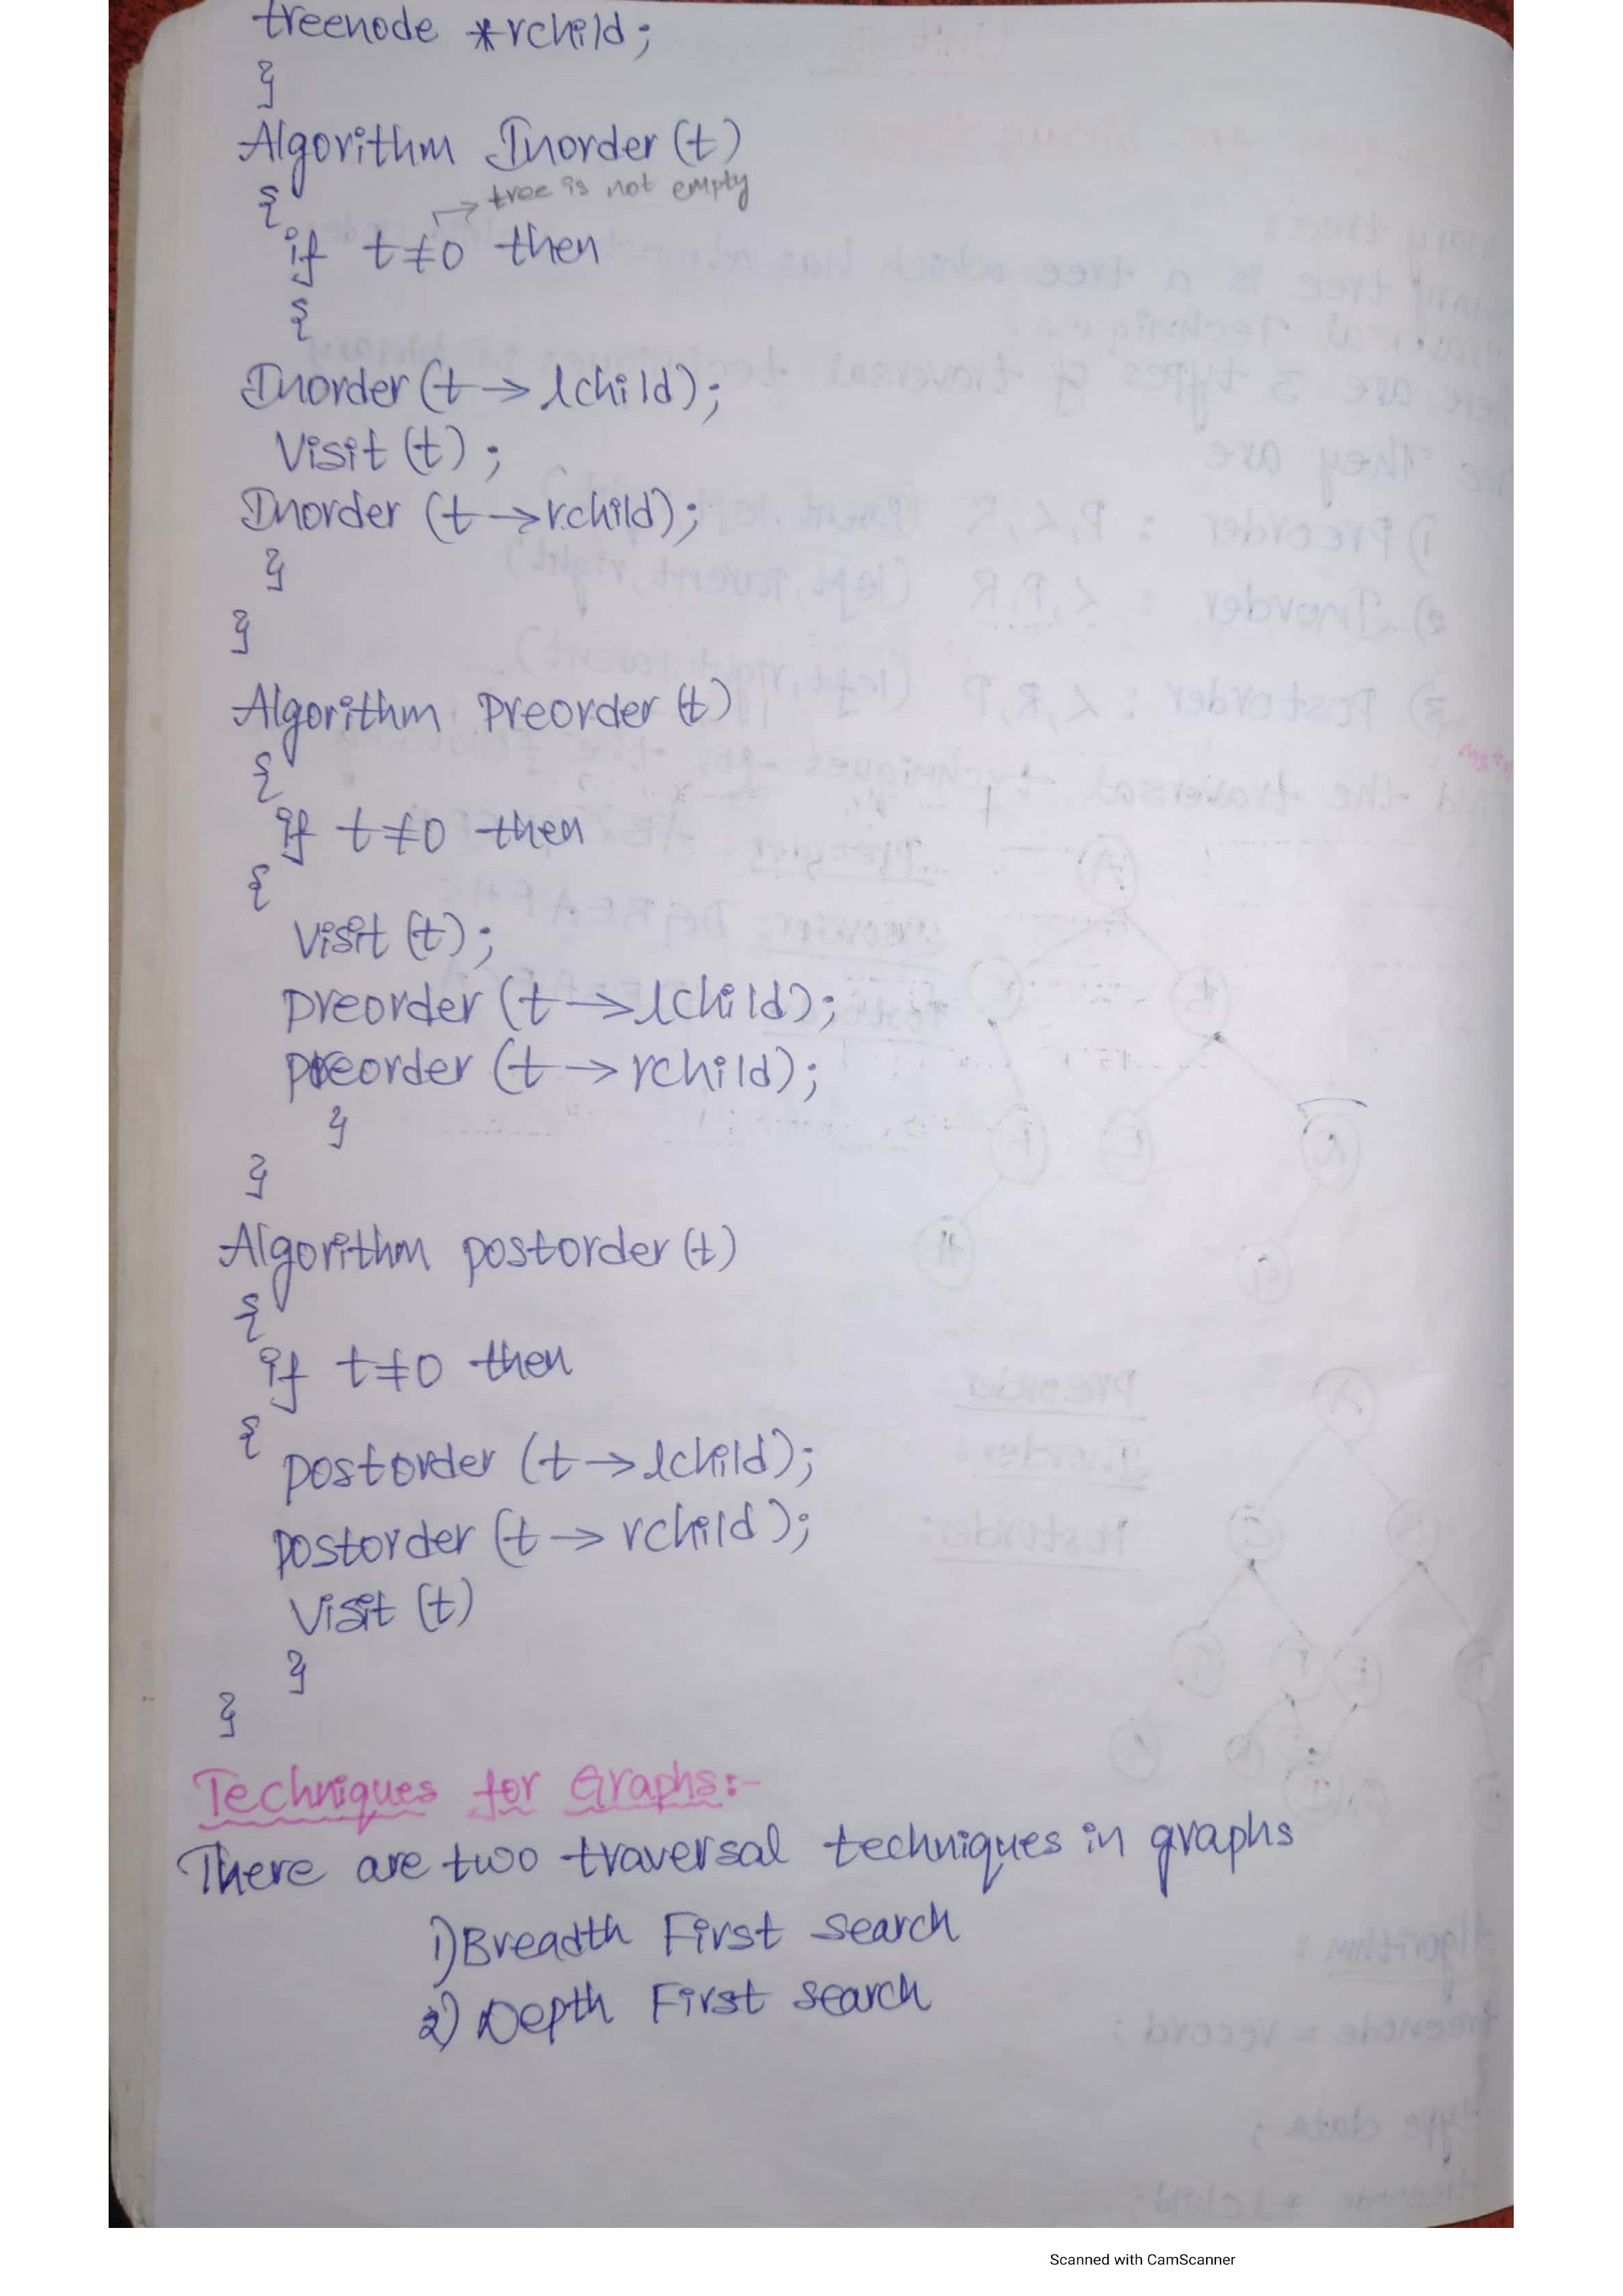 treenode *rchild;
}
Algorithm Inorder (t)
{
→ tree is not empty
if t≠0 then
{
Inorder (t → lchild);
Visit (t) ;
Inorder (t → rchild);
}
}
Algorithm Preorder (t)
{
if t≠0 then
{
Visit (t);
preorder (t → lchild);
preorder (t → rchild);
}
}
Algorithm postorder (t)
{
if t≠0 then
{
postorder (t → lchild);
postorder (t → rchild);
Visit (t)
}
}
Techniques for Graphs:-
There are two traversal techniques in graphs
1) Breadth First Search
2) Depth First Search
Scanned with CamScanner